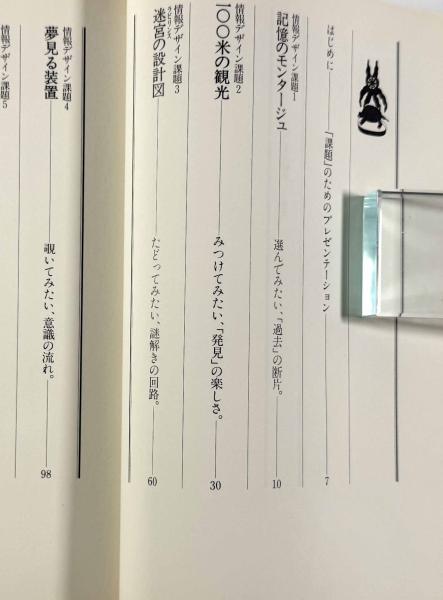 はじめに 「課題」のためのプレゼンテーション 7
情報デザイン課題1
記憶のモンタージュ 選んでみたい、「過去」の断片。 10
情報デザイン課題2
一〇〇米の観光 みつけてみたい、「発見」の楽しさ。 30
情報デザイン課題3
ラビリンス
迷宮の設計図 たどってみたい、謎解きの回路。 60
情報デザイン課題4
夢見る装置 覗いてみたい、意識の流れ。 98
情報デザイン課題5